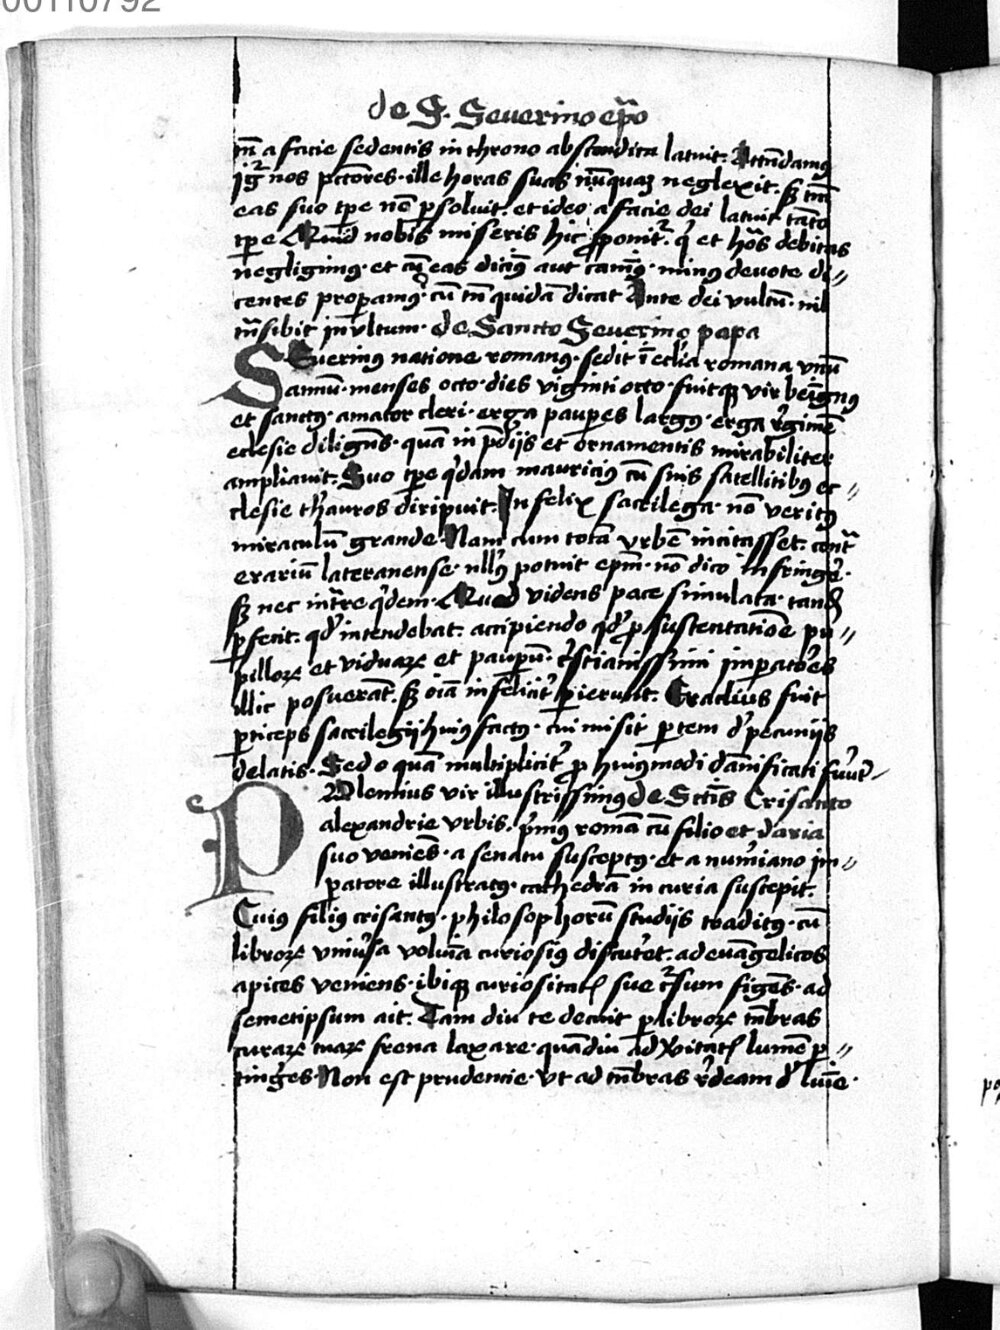 00110792
de S. Seuerino ep̃o
tm̃ a facie sedentis in throno abscondita latuit. Attendamꝰ
igr̃ nos pctores. ille horas suas nũquaꝫ neglexit. sꝫ tm̃
eas suo tp̃e nõ ꝑsoluit. et ideo a facie dei latuit tãto
tp̃e Quid nobis miseris hic ꝓponitr̃. qͥ et hõs debitas
negligimꝰ. et cũ eas dicimꝰ aut canimꝰ. minꝰ deuote di〃
centes properamꝰ. cũ tm̃ quidã dicat Ante dei vultũ. nil
tñ sibit inultum. de Sancto Seuerino papa
Seuerinꝰ natione romanꝰ. sedit ĩ ecclia romana vnũ
annũ. menses octo. dies viginti octo. fuitqꝫ vir benignꝰ
et sanctꝰ. amator cleri. erga pauꝑes largꝰ. erga rͤgimẽ
eclesie diligẽs. quã in pͤdijs et ornamentis mirabiliter
ampliauit. Suo tp̃e qͥdam mauriciꝰ cũ suis satellitibꝰ ec〃
clesie thͨauros diripuit. Infelix sacrilega. nõ veritꝰ
miraculũ grande. Nam cum totã vrbẽ incitasset. contͣ
erariũ lateranense. nullꝰ potuit ep̃m. nõ dico infringeͬ.
sꝫ nec intrͣre qͥdem. Quod videns pace simulata. tandẽ
ꝑfecit. qd̃ intendebat. accipiendo qd̃ ꝓ sustentatiõe pu〃
pilloꝝ et viduaꝝ et paupeꝝ. cͬstianissimi imperatoͤs
illic posuerãt. sꝫ oĩa infelicitͬ ꝑierunt. Eraclius fuit
ꝑticeps sacrilegij huiꝰ factꝰ. cui misit ꝑtem dͤ pecunijs
delatis. Sed o quã multiplicitͬ ꝓ huiꝰmodi dãnificati fuͬut.
Polemius vir illustrissimꝰ de Sctĩs Crisanto
alexandrie vrbis. pͥmꝰ romã cũ filio et daria
suo veniẽs. a senatu susceptꝰ. et a numiano im〃
patore illustratꝰ. cathedrã in curia suscepit.
Cuiꝰ filiꝰ crisantꝰ. philosophorũ studijs traditꝰ. cũ
libroꝝ vniuͬsa volumĩa curiosiꝰ discuteͬt. ad euãgelicos
apices veniens. ibiqꝫ curiositatꝭ sue cͬsum figẽs. ad
semetipsum ait. Tam diu te decuit ꝑ libroꝝ tnͤbras
curaꝝ tuaꝝ frena laxare. quãdiu ad vͤitatꝭ lumẽ ꝑ〃
tinges. Non est prudencie. vt ad tnͤbras rͤdeam dͤ lumĩe.